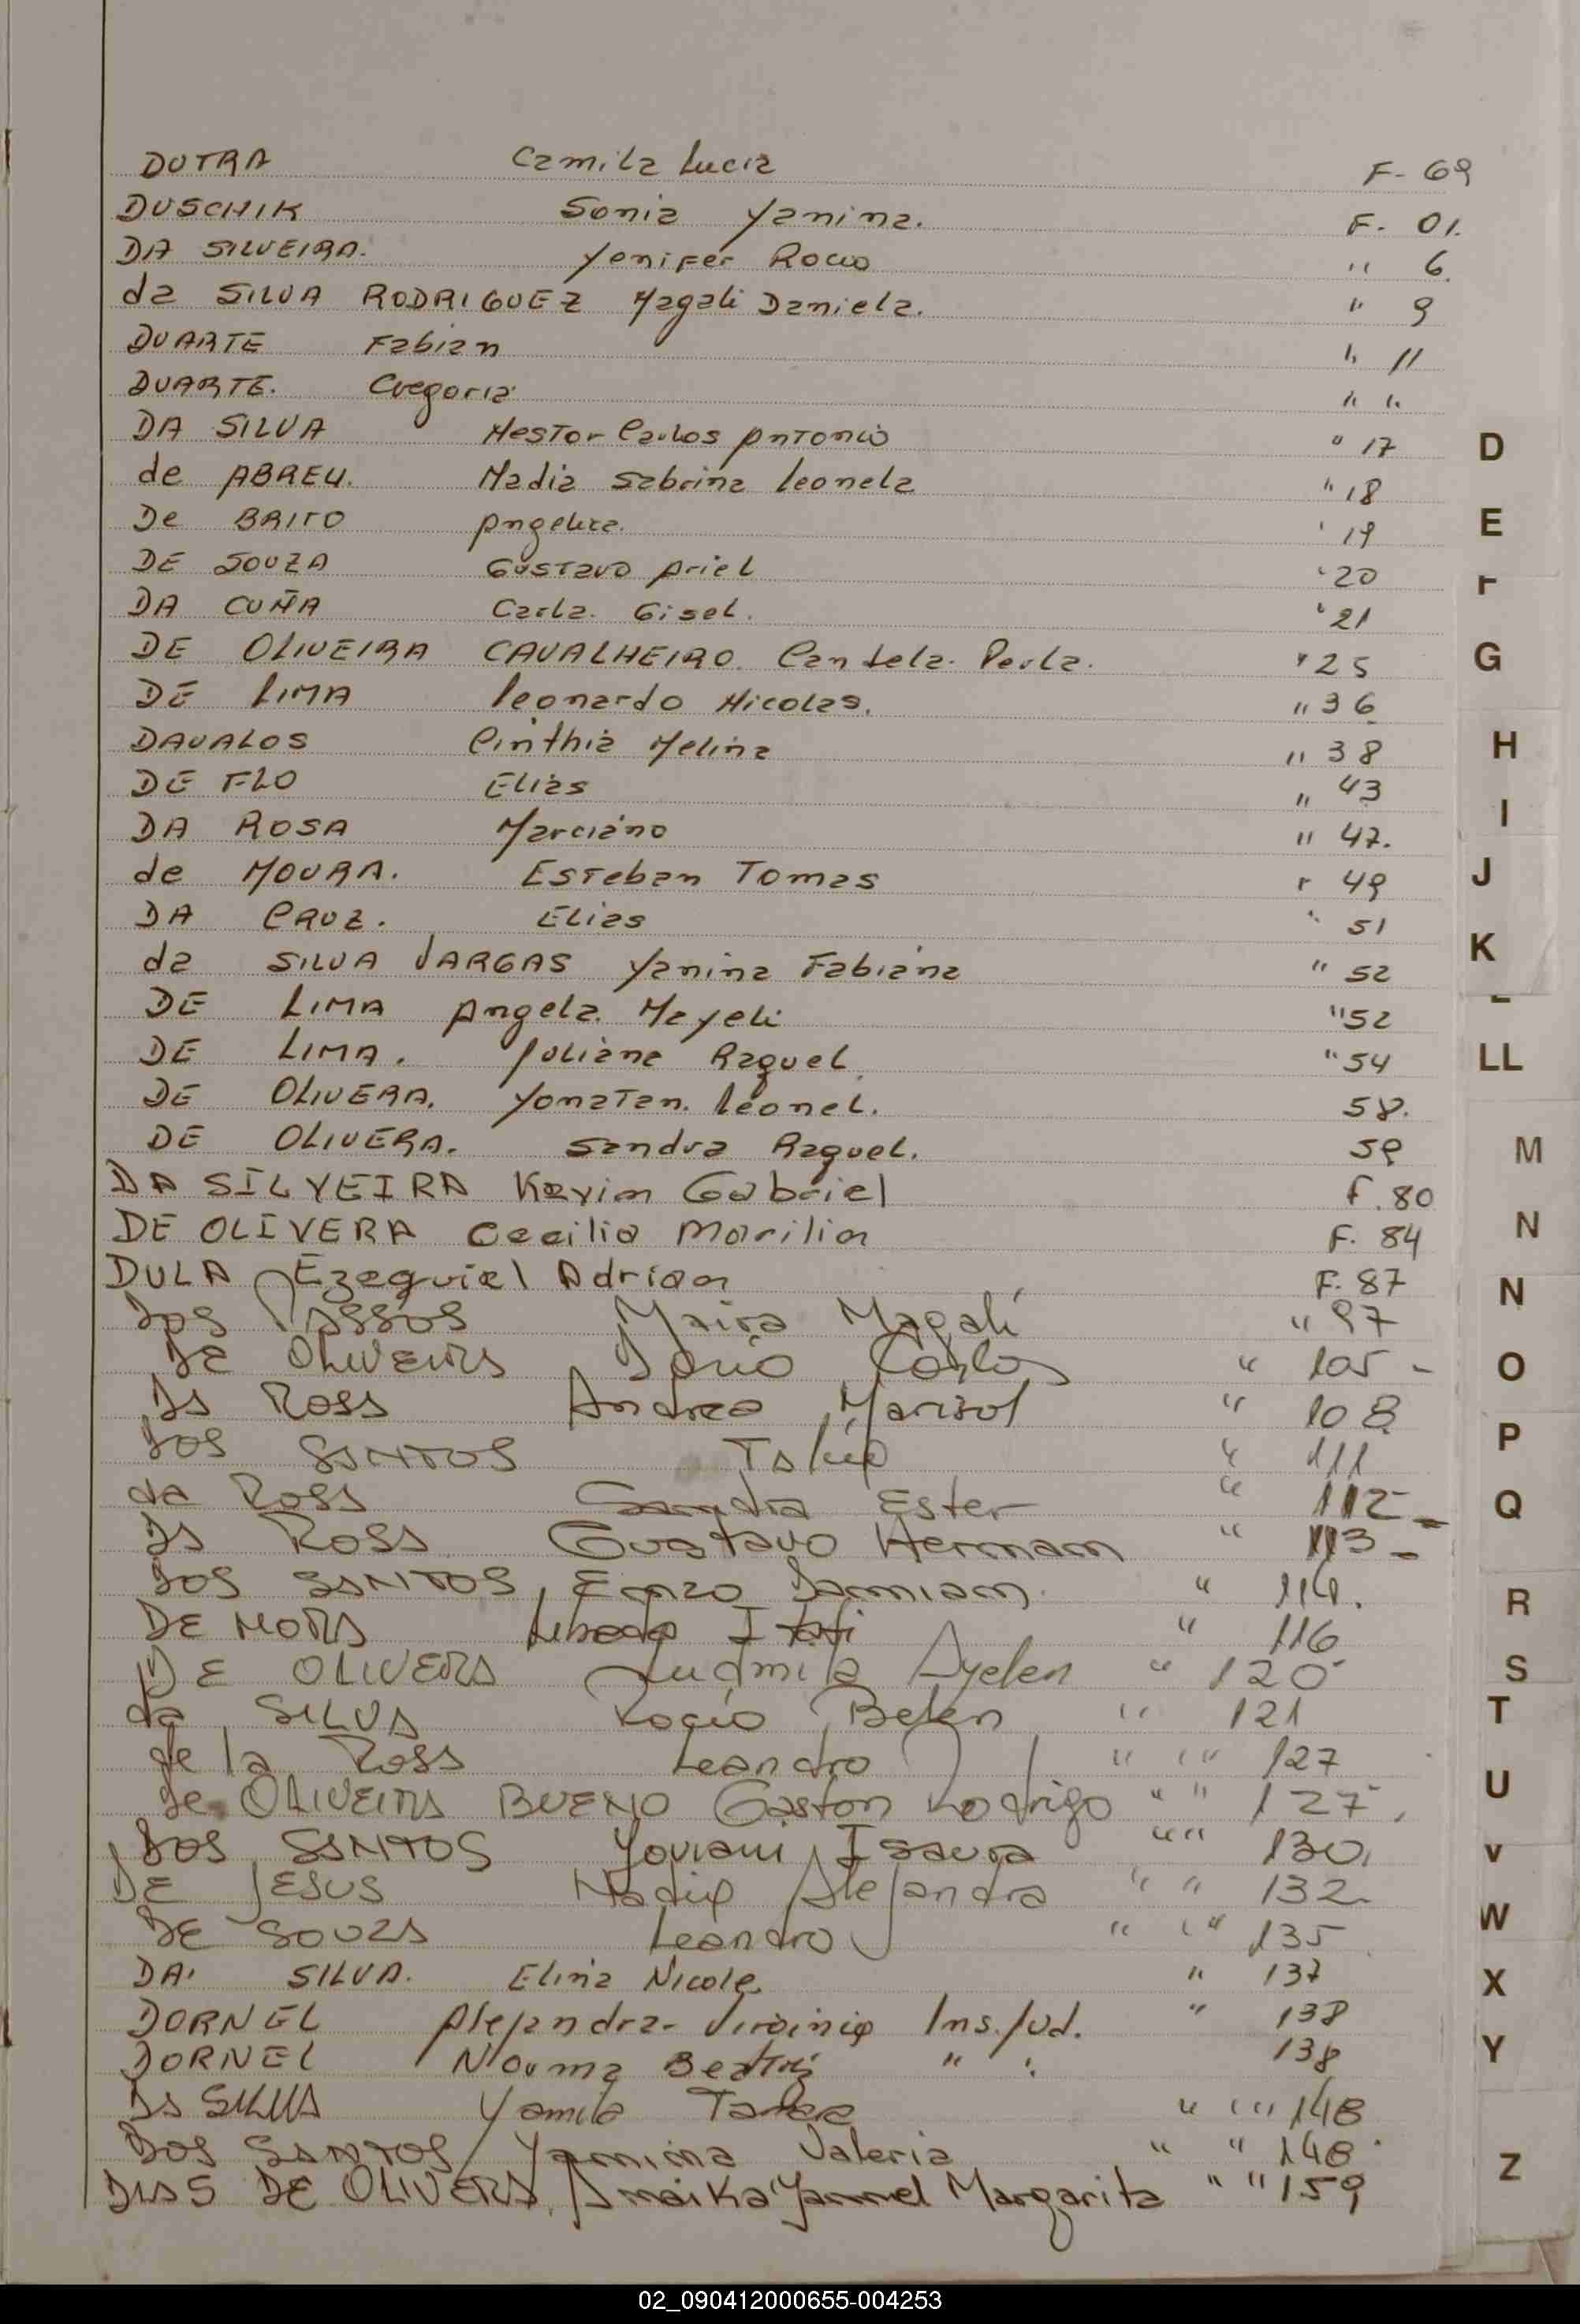 DUTRA Camila Lucia F- 69
DUSCHIK Sonia Yanina. F. 01.
DA SILVEIRA. Yenifer Rocio " 6.
da SILVA RODRIGUEZ Magali Daniela. " 9
DUARTE Fabian " 11
DUARTE. Gregoria " "
DA SILVA Nestor Carlos Antonio " 17
de ABREU. Nadia Sabrina Leonela " 18
De BRITO Angelica. ' 19
DE SOUZA Gustavo Ariel ' 20
DA CUÑA Carla. Gisel. ' 21
DE OLIVEIRA CAVALHEIRO. Perla. " 25
DE LIMA Leonardo Nicolas. " 36
DAVALOS Cinthia Melina " 38
DE FLO Elias " 43
DA ROSA Marciano " 47.
de MOURA. Esteban Tomas " 49
DA CRUZ. Elias " 51
da SILVA VARGAS Yanina Fabiana " 52
DE LIMA Angela. Mayeli " 52
DE LIMA. Juliana Raquel " 54
DE OLIVERA. Yonatan. Leonel. 58.
DE OLIVERA. Sandra Raquel. 59
DA SILVEIRA Kevin Gabriel F. 80
DE OLIVERA Cecilia Marilia F. 84
DULA Ezequiel Adrian F. 87
Dos PASSOS Maira Magalí " 97
DE OLIVEIRA Dario Carlos " 105 -
DA ROSA Andrea Marisol " 108
DOS SANTOS " 111
da ROSA Sandra Ester " 112 -
DA ROSA Gustavo Hernan " 113 -
DOS SANTOS, Enzo Damian. " 114.
DE MORA Itati " 116
DE OLIVERA Ludmila Ayelen " 120
da SILVA Rocío Belen " 121
de la ROSA Leandro " " 127
de OLIVEIRA BUENO Gaston Rodrigo " " 127.
DOS SANTOS Isaura " " 130.
DE JESUS Nadia Alejandra " " 132.
DE SOUZA Leandro " " 135
DA SILVA. Nicole " 137
DORNEL Alejandra- Virginia Ins. Jud. " 138
DORNEL Norma Beatriz " " 138
DA SILVA Yamila " " 148
DOS SANTOS Yanina Valeria " " 148
DIAS DE OLIVERA, Anaika Yannel Margarita " " 159
D
E
F
G
H
I
J
K
L
LL
M
N
N
O
P
Q
R
S
T
U
V
W
X
Y
Z
02_090412000655-004253